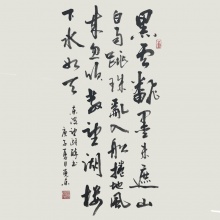 黑雲翻墨未遮山
白雨跳珠亂入船捲地風
來忽吹散望湖樓
下水如天
東坡望湖醉書
庚子夏日